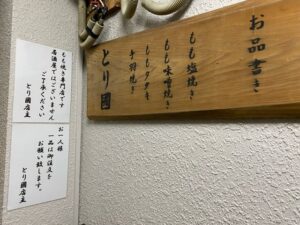 お品書き
もも塩焼き
もも味噌焼き
ももタタキ
手羽焼き
とり園
もも焼き専門店です
居酒屋ではございません
ご了承ください
とり園店主
お一人様
一品は御注文を
お願い致します。
とり園店主